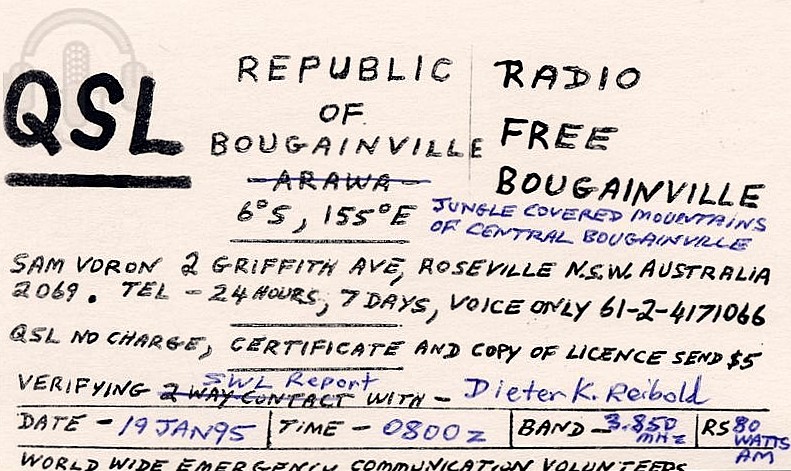 QSL
REPUBLIC
OF
BOUGAINVILLE
ARAWA
6°S, 155°E
RADIO
FREE
BOUGAINVILLE
JUNGLE COVERED MOUNTAINS
OF CENTRAL BOUGAINVILLE
SAM VORON 2 GRIFFITH AVE, ROSEVILLE N.S.W. AUSTRALIA
2069. TEL - 24 HOURS, 7 DAYS, VOICE ONLY 61-2-4171066
QSL NO CHARGE, CERTIFICATE AND COPY OF LICENCE SEND $5
SWL Report
VERIFYING 2 WAY CONTACT WITH - Dieter K. Reibold
DATE - 19 JAN 95 TIME - 0800 Z BAND - 3.850 MHz RS 80 WATTS AM
WORLD WIDE EMERGENCY COMMUNICATION VOLUNTEERS